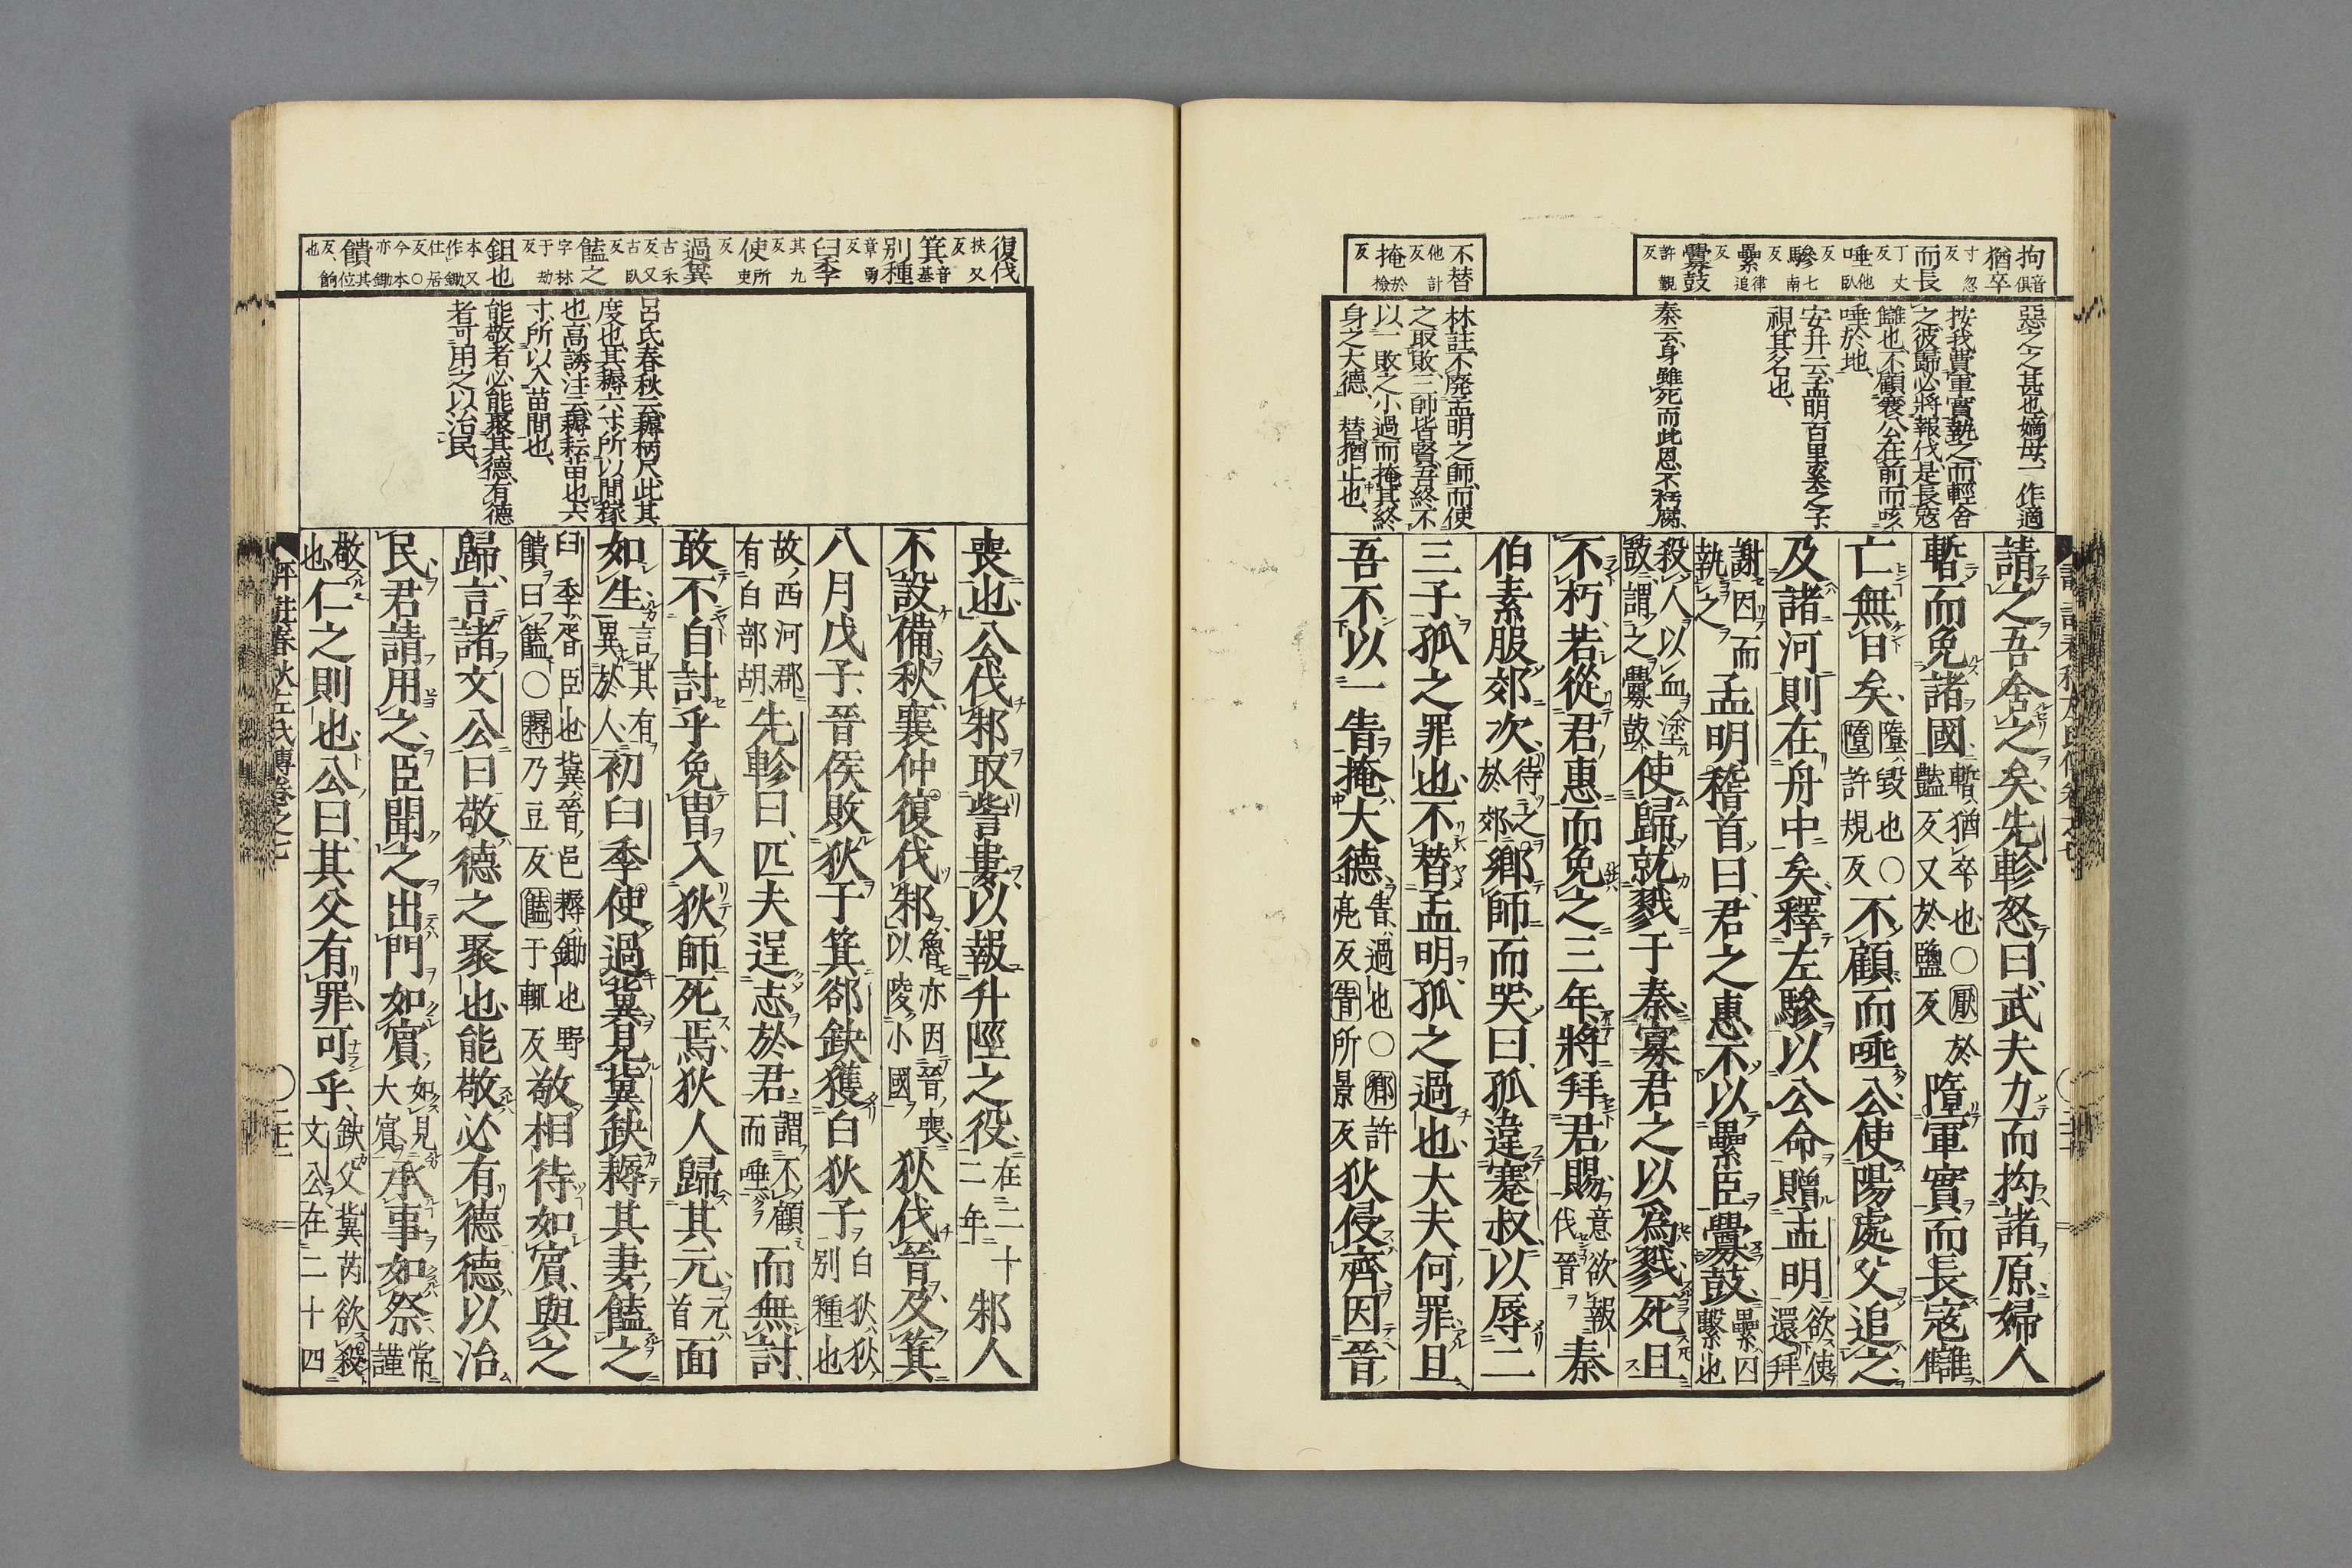 拘音俱
猶卒寸忽反
而長丁丈反
唾他臥反
驂七南反
纍律追反
釁鼓許覲反
不替他計反
掩於檢反
惡之之甚也嫡母一作適
按我費軍實執之而輕舍
之彼歸必將報伐是長寇
讎也不顧襄公在前而咳
唾於地
安井云孟明百里奚之子
視其名也
秦云身雖死而此恩不朽腐
林註不廢孟明之師而使
之取敗三帥皆賢吾終不
以一敗之小過而掩其終
身之大德 替猶止也
請之吾舍之矣先軫怒曰武夫力而拘諸原婦人
暫而免諸國暫猶卒也○厭於豔反又於鹽反墮軍實而長寇讎
亡無日矣墮毀也○墮許規反不顧而唾公使陽處父追之
及諸河則在舟中矣釋左驂以公命贈孟明欲使還拜
謝因而執之孟明稽首曰君之惠不以纍臣釁鼓纍囚繫也
殺人以血塗鼓謂之釁鼓使歸就戮于秦寡君之以爲戮死且
不朽若從君惠而免之三年將拜君賜意欲報伐晉秦
伯素服郊次待之於郊鄉師而哭曰孤違蹇叔以辱二
三子孤之罪也不替孟明孤之過也大夫何罪且
吾不以一眚掩大德眚過也○鄉許亮反眚所景反狄侵齊因晉
復伐扶又反
箕音基
別種章勇反
臼季其九反
使所吏反
過冀古禾反又古臥反
饁之字林于劫反
鉏也本又作鋤仕居反○今本亦鋤
饋其位反餉也
呂氏春秋云耨柄尺此其
度也其耨六寸所以間稼
也高誘注云耨耘苗也六
寸所以入苗間也
能敬者必能聚其德有德
者可用之以治民
喪也公伐邾取訾婁以報升陘之役在二十二年邾人
不設備秋襄仲復伐邾魯亦因晉喪以陵小國狄伐晉及箕
八月戊子晉侯敗狄于箕郤缺獲白狄子白狄狄別種也
故西河郡有白部胡先軫曰匹夫逞志於君謂不顧而唾而無討
敢不自討乎免冑入狄師死焉狄人歸其元元首面
如生言其有異於人初臼季使過冀見冀缺耨其妻饁之
臼季胥臣也冀晉邑耨鋤也野饋曰饁○耨乃豆反饁于輒反敬相待如賓與之
歸言諸文公曰敬德之聚也能敬必有德德以治
民君請用之臣聞之出門如賓如見大賓承事如祭常謹
敬也仁之則也公曰其父有罪可乎缺父冀芮欲殺文公在二十四
評註春秋左氏傳卷之七